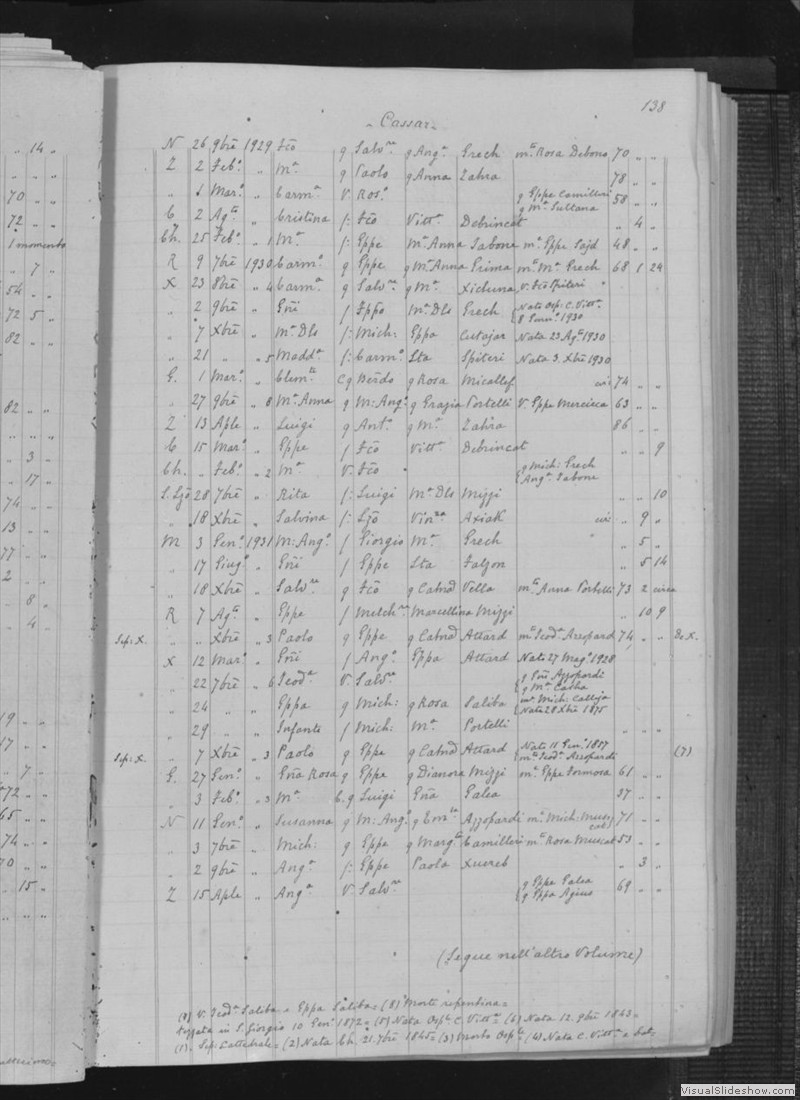 138
Cassar
N 26 9bre 1929 Fco g Salvre g Anga Grech mta Rosa Debono 70 " "
Z 2 Febo " Ma g Paolo g Anna Zahra 78 " "
" 1 Maro " Carma V. Roso { g Eppe Camilleri g Ma Sultana 58 " "
C 2 Agto " Cristina f: Fco Vitta Debrincat " 4 "
Ch. 25 Febo " 1 Ma f: Eppe Ma Anna Sabone mta Eppe Sajd 48 " "
R 9 7bre 1930 Carmo g Eppe g Ma Anna Grima mto Ma Grech 68 1 24
X 23 8bre " 4 Carma g Salvre g Ma Xichuna V. Fco Spiteri "
" 2 9bre " Gñi f Eppe Ma Dls Grech { Nato Osp. C. Vitta 8 Genro 1930
" 7 Xbre " Ma Dls f: Mich: Eppa Cutajar Nata 23 Agto 1930
" 21 " " 5 Madda f: Carmo Sta Spiteri Nata 3 Xbre 1930
G. 1 Maro " Clemte C g Berdo g Rosa Micallef 74 " "
" 27 9bre " 8 Ma Anna g M: Ango g Grazia Portelli V. Eppe Mercieca 63 " "
Z 13 Aple " Luigi g Anto g Ma Zahra 86 " "
C 15 Maro " Eppe f Fco Vitta Debrincat " " 9
Ch. " Febo " 2 Ma V. Fco { g Mich: Grech Anga Sabone
S. Lzo 28 7bre " Rita f: Luigi Ma Dls Mizzi " " 10
" 18 Xbre " Salvina f: Lzo Vinza Axiak " 9 "
M 3 Geno 1931 M: Ango f Giorgio Ma Grech " " 5 "
" 17 Giugo " Gñi f Eppe Sta Falzon " 5 14
" 18 Xbre " Salvre g Fco g Catnd Vella mto Anna Portelli 73 2 circa
R 7 Agto " Eppe f Melchre Marcellina Mizzi 10 9
Sep: X. " " Xbre " 3 Paolo g Eppe g Catnd Attard mto Teoda Azzopard 74 " " De X.
X 12 Maro " Gñi f Ango Eppa Attard Nato 27 Mago 1928
" 22 7bre " 6 Teoda V. Salvre { g Gñi Azzopardi g Ma Cassa
" 24 " " Eppa g Mich: g Rosa Saliba { mta Mich: Calleja Nata 28 Xbre 1875
" 29 " " Infante f Mich: Ma Portelli " "
Sep: X. " 7 Xbre " 3 Paolo g Eppe g Catnd Attard { Nato 11 Geno 1857 mto Teoda Azzopardi (7)
G. 27 Geno " Gña Rosa g Eppe g Dianora Mizzi mta Eppe Formosa 61 " "
" 3 Febo " 3 Ma C. g Luigi Gña Galea 37 " "
N 11 Geno " Susanna g M: Ango g Emta Azzopardi mta Mich: Muscat 71 " "
" 3 7bre " Mich: g Eppe g Margta Camilleri mto Rosa Muscat 53 " "
" 2 9bre " Anga f: Eppe Paola Xuereb " 3 "
Z 15 Aple " Anga V. Salvre { g Eppe Galea g Eppa Agius 69 " "
(Segue nell'altro Volume)
V. Teoda Saliba = Eppa Saliba = (8) Morte repentina =
in S. Giorgio 10 Geno 1872 = (5) Nata Osple C. Vitta = (6) Nata 12. 9bre 1843 =
(1). Sep: Cattedrale = (2) Nata Ch. 21. 7bre 1845 = (3) Morto Osple = (4) Nata C. Vitta
" 14 "
" " "
70 " "
72 " "
1 momento
" 7 "
54 " "
72 5 "
82 " "
82 " "
" " "
" 3 "
" 17 "
74 " "
13 " "
77 " "
2 " "
" 8
" 4
19 "
17 "
" 7 "
72 " "
65 " "
74 " "
70 " "
" 15 "
VisualSlideshow.com